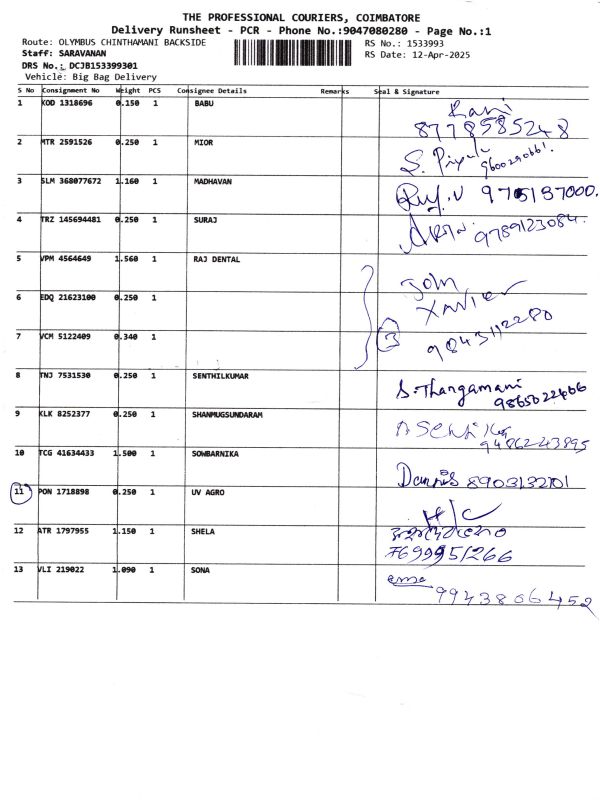 THE PROFESSIONAL COURIERS, COIMBATORE
Delivery Runsheet - PCR - Phone No.:9047080280 - Page No.:1
Route: OLYMBUS CHINTHAMANI BACKSIDE RS No.: 1533993
Staff: SARAVANAN RS Date: 12-Apr-2025
DRS No.: DCJB153399301
Vehicle: Big Bag Delivery
S No Consignment No Weight PCS Consignee Details Remarks Seal & Signature
1 KOD 1318696 0.150 1 BABU Rani
8778585248
2 MTR 2591526 0.250 1 MIOR S. Priya
9600290661
3 SLM 368077672 1.160 1 MADHAVAN 975187000.
4 TRZ 145694481 0.250 1 SURAJ 9789123084
5 VPM 4564649 1.560 1 RAJ DENTAL John
6 EDQ 21623100 0.250 1 XAVIER
7 VCM 5122409 0.340 1 3 9843112280
8 TNJ 7531530 0.250 1 SENTHILKUMAR S. Thangamani
9865022466
9 KLK 8252377 0.250 1 SHANMUGSUNDARAM
9486243895
10 TCG 41634433 1.500 1 SOWBARNIKA Dannis 8903132701
11 PON 1718898 0.250 1 UV AGRO H/C
12 ATR 1797955 1.150 1 SHELA
7699951266
13 VLI 219022 1.090 1 SONA
9943806452